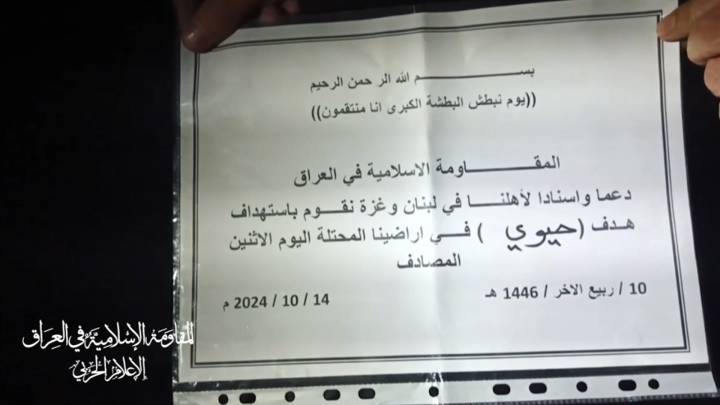 بســـــــــم الله الرحمن الرحيم
((يوم نبطش البطشة الكبرى انا منتقمون))
المقـــــــاومة الاسلامية في العراق
دعما واسنادا لأهلنــا في لبنان وغزة نقــوم باستهداف
هــدف (حيوي) فــي اراضينا المحتلة اليوم الاثنين
المصادف
10 / ربيع الاخر / 1446 هـ
14 / 10 / 2024 م
المقاومة الإسلامية في العراق
الإعلام الحربي